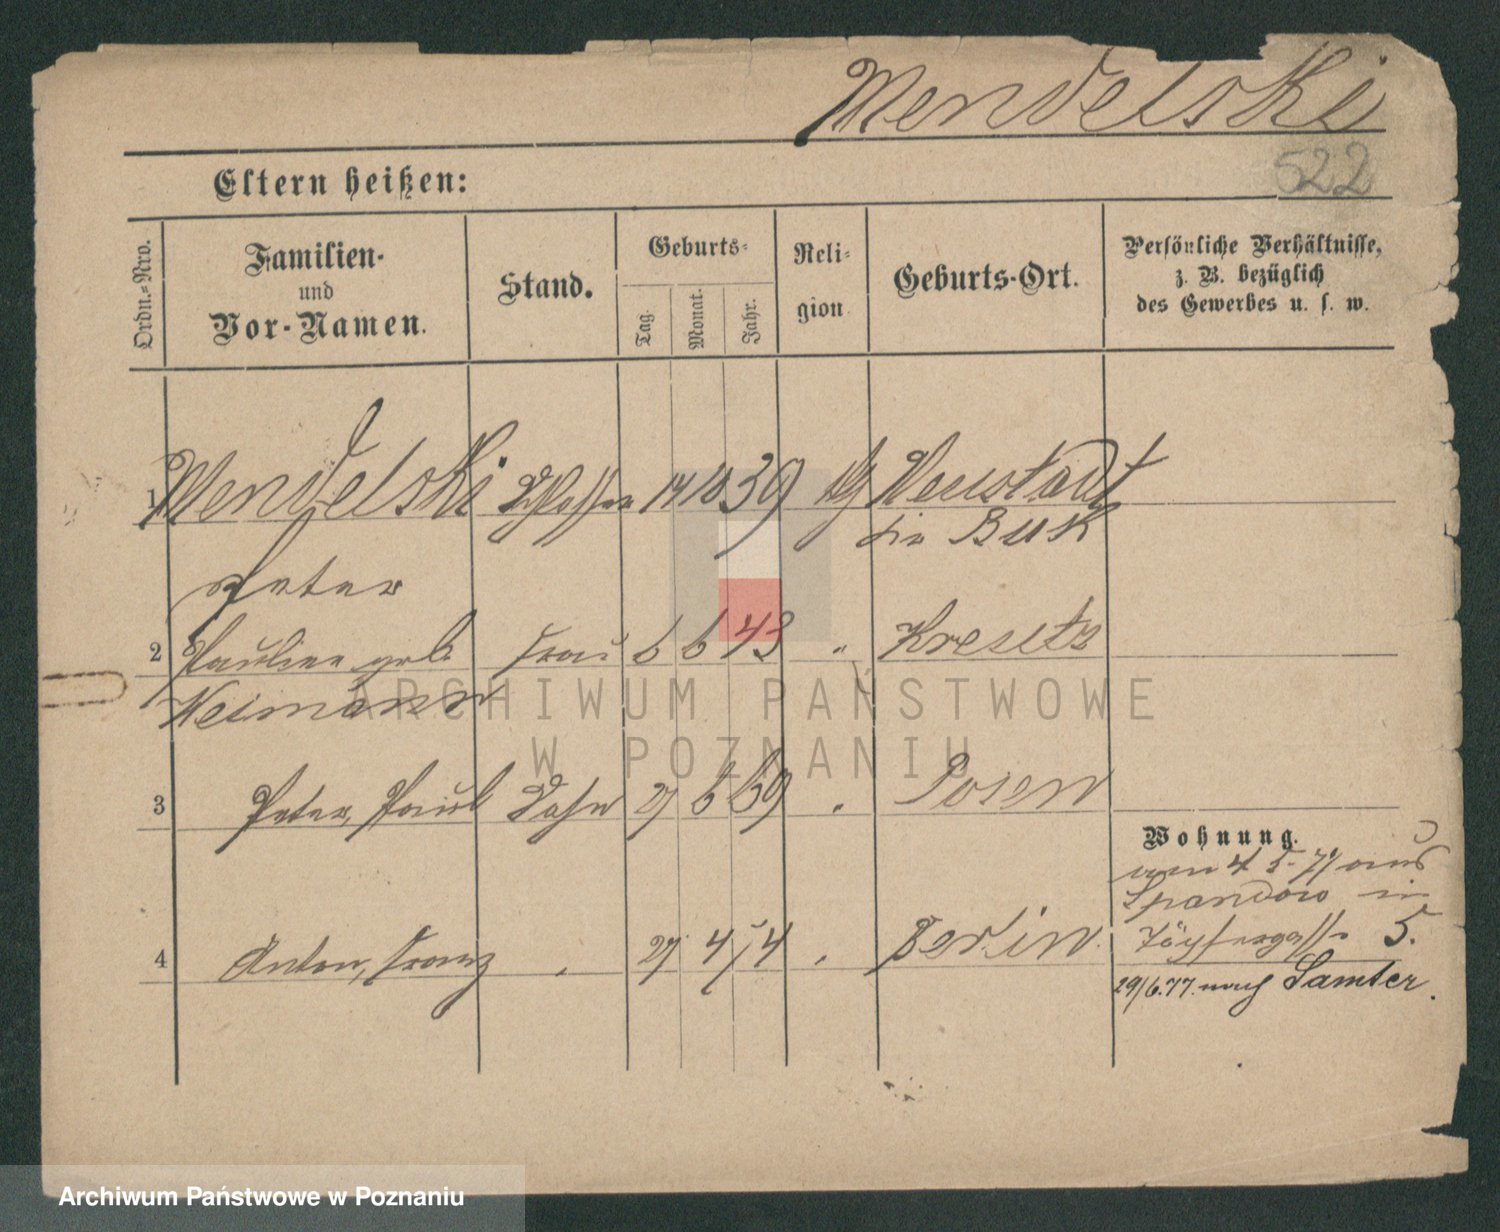 Mendelski
522
Eltern heißen:
Ordn.-Nro.
Familien-
und
Vor-Namen.
Stand.
Geburts-
Tag.
Monat.
Jahr.
Reli-
gion
Geburts-Ort.
Persönliche Verhältnisse,
z. B. bezüglich
des Gewerbes u. s. w.
1 Mendelski Schlosser 14 10 39 Neustadt
Buk
Peter
2 Pauline geb. Frau 6 6 43 " 
Neimann
3 Peter, Paul Sohn 27 6 69 " Posen
Wohnung.
am 4 5. 71 aus
Spandow in
4 Anton, Franz " 27 4 74 " Berlin. Töpfergasse 5.
29/6.77. nach Samter.
ARCHIWUM PAŃSTWOWE
W POZNANIU
Archiwum Państwowe w Poznaniu